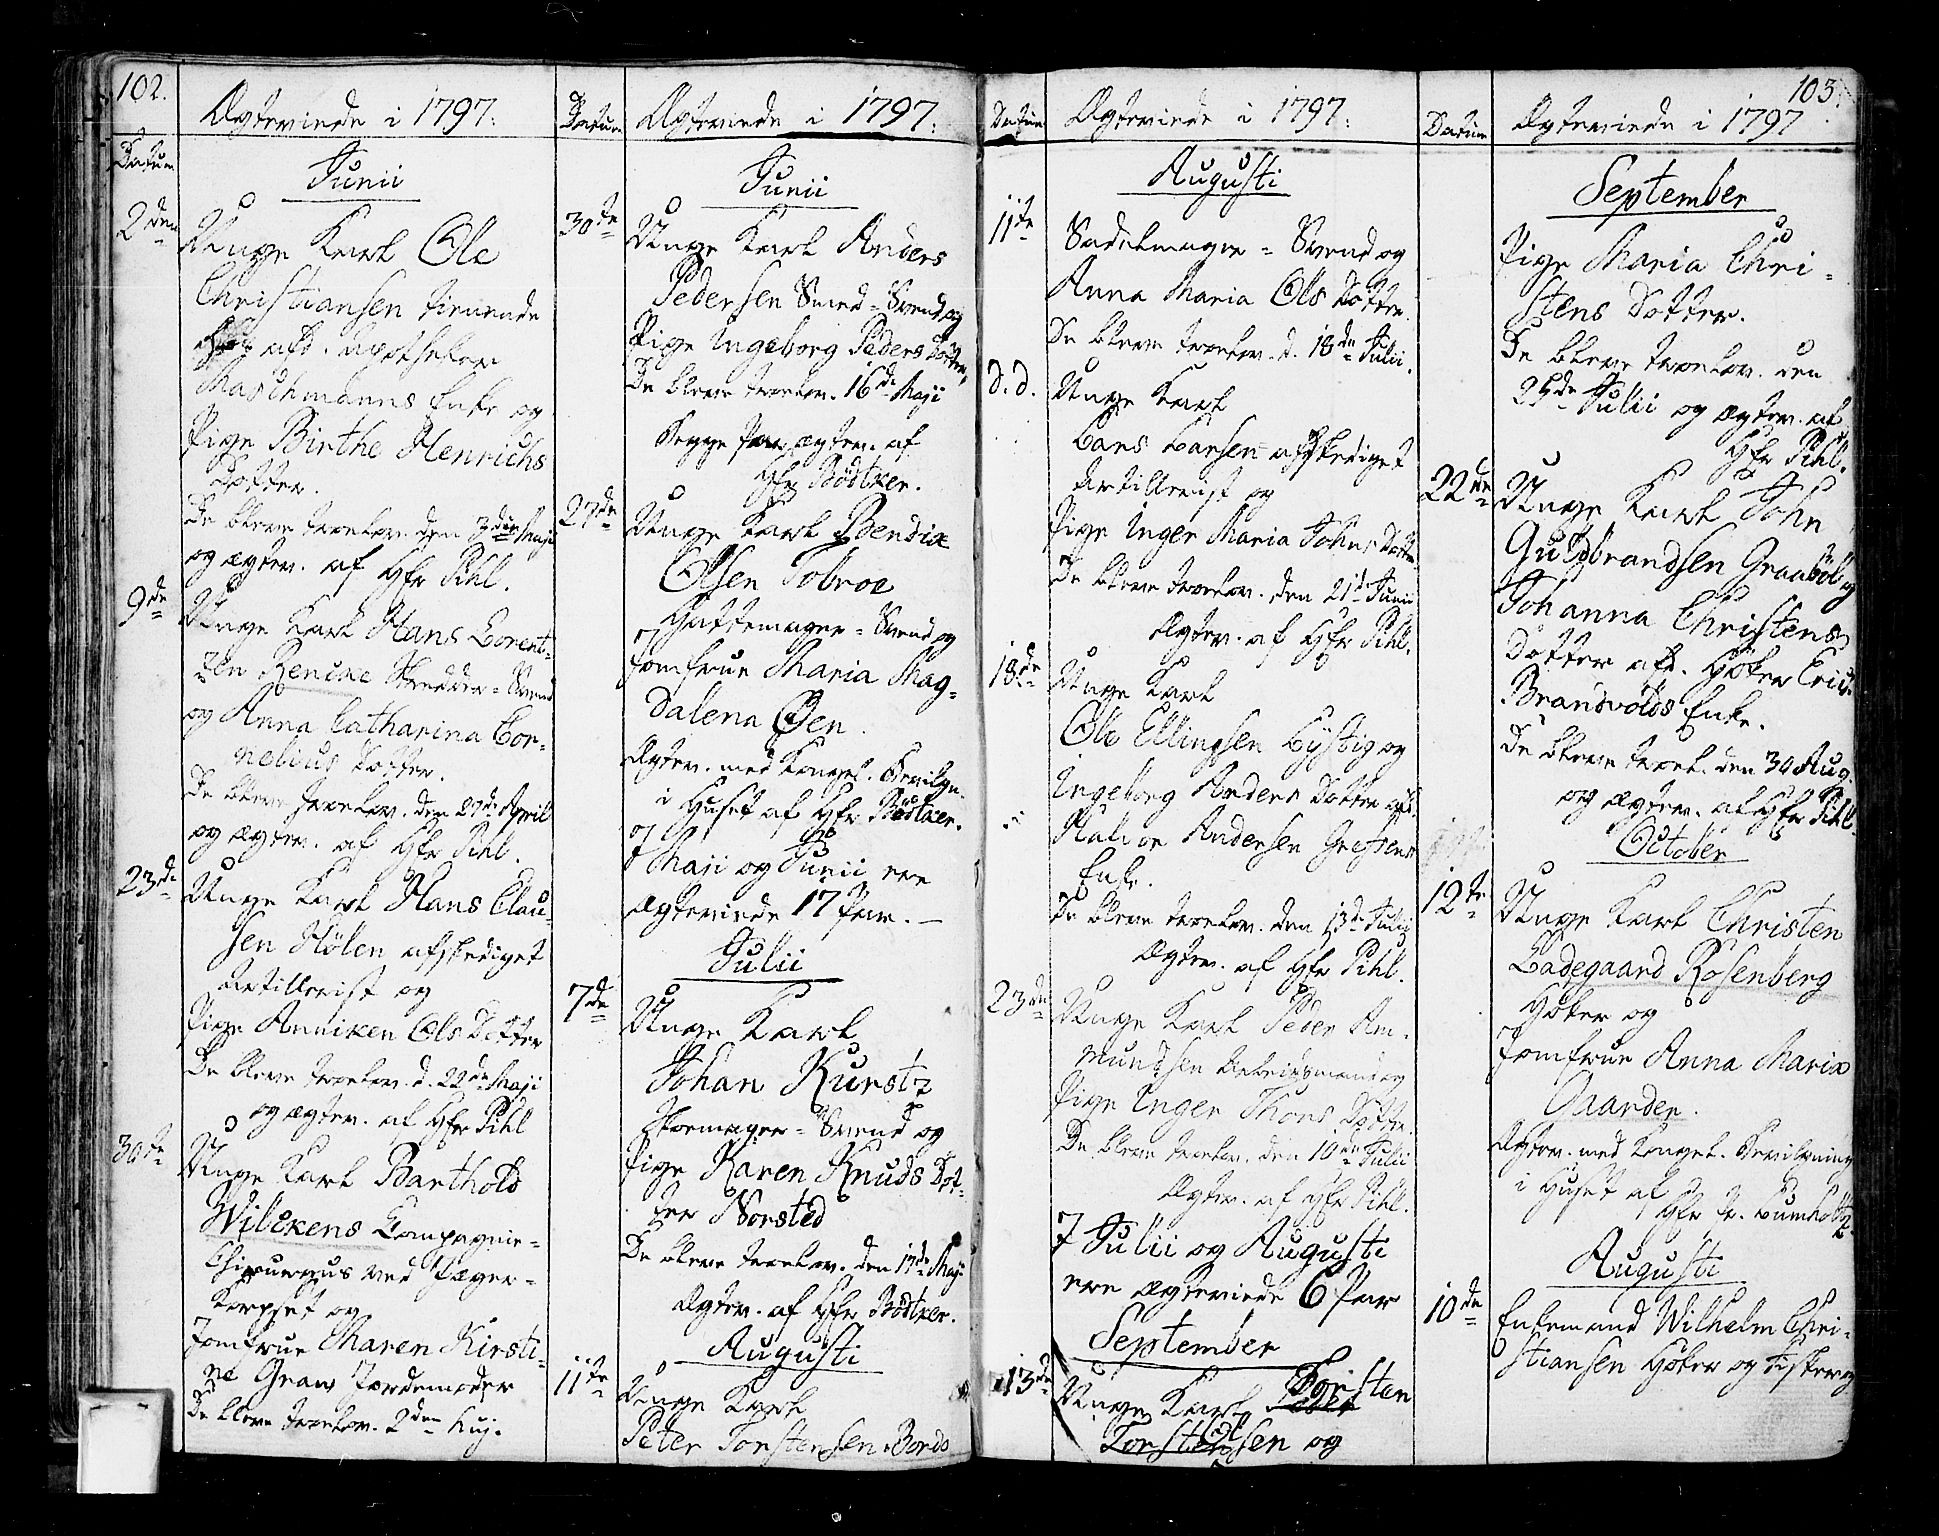 102.
Ægteviede i 1797.
Datum
Junii
2den
Unge Karl Ole
Christiansen tienende
afd. Apotheker
Maschmanns Enke og
Pige Birthe Henrichs
Dotter.
De bleve trolov. den 3die Maji
og ægtev. af Hfr Pihl.
9de
Unge Karl Hans Lorent-
zen Rencke Skrædder-Svend
og Anna Catharina Cor-
nelius Dotter.
De bleve trolov. den 27de April
og ægtev. af Hfr Pihl.
23de
Unge Karl Hans Clau-
sen Hölen afskediget
Artillerist og
Pige Anniken Ols Dotter
De bleve trolov. d. 22de Maji
og ægtev. af Hfr Pihl
30te
Unge Karl Barthold
Wilckens Compagnie-
Chirurgus ved Jæger-
Korpset og
Jomfrue Maren Kirsti-
ne Gram Jordemoder
De bleve trolov. 2den Maj.
Datum
Ægteviede i 1797.
Junii
30te
Unge Karl Anders
Pedersen Smed-Svend og
Pige Ingeborg Peders Dotter,
De bleve trolov. 16de Maji
Begge Par ægtev. af
Hfr Bödtker.
27de
Unge Karl Bendix
Olsen Tobroe
Hattemager-Svend og
Jomfrue Maria Mag-
dalena Øen.
Ægtev. med Kongel. Bevilgn.
i Huset af Hfr Bödtker.
I Maji og Junii ere
ægteviede 17 Par.
Julii
7de
Unge Karl
Johan Kurstz
Skomager-Svend og
Pige Karen Knuds Dot-
ter Norsted
De bleve trolov. den 17de Maji
Ægtev. af Hfr Bödtker.
Augusti
11te
Unge Karl
Peter Torstensen Bords
Datum
Ægteviede i 1797.
Augusti
11te
Sadelmager-Svend og
Anna Maria Ols Dotter.
De bleve trolov. d. 18de Julii.
d. d.
Unge Karl
Lars Larsen afskediget
Artillerist og
Pige Inger Maria Johns Dotter
De bleve trolov. den 21de Junii
Ægtev. af Hfr Pihl.
18de
Unge Karl
Ole Ellingsen Lystig og
Ingeborg Anders Dotter afd.
Halvor Andersen Grestens
Enke.
De bleve trolov. den 13de Julii
Ægtev. af Hfr Pihl.
23de
Unge Karl Peder Am-
mundsen Arbeidsmand og
Pige Inger Thons Dotter.
De bleve trolov. den 10de Julii
Ægtev. af Hfr Pihl.
I Julii og Augusti
ere ægteviede 6 Par
September
13de
Unge Karl Torsten
Torstensen og
103.
Datum
Ægteviede i 1797
September
Pige Maria Chri-
stens Dotter.
De bleve trolov. den
25de Julii og ægtev. af
Hfr Pihl.
22de
Unge Karl John
Guldbrandsen Graaböl og
Johanna Christens
Dotter afd. Höker Erich
Brandvolds Enke.
De bleve trol. den 30 Aug.
og ægtev. af Hfr Pihl.
October
12te
Unge Karl Christen
Ladegaard Rosenberg
Höker og
Jomfrue Anna Maria
Gaarder.
Ægtev. med Kongel. Bevilgning
i Huset af
Hfr Pr. Lumholtz
Augusti
10de
Enkemand Wilhelm Chri-
stiansen Höker og Fisker og